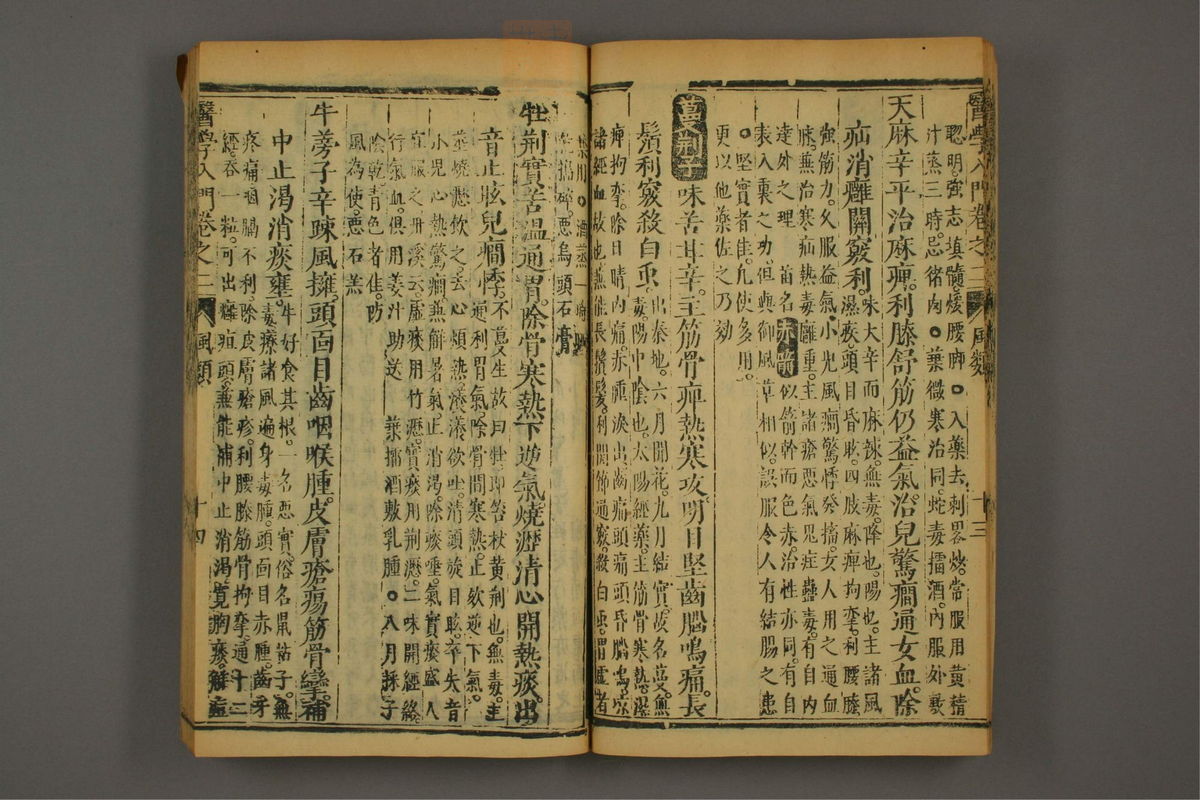 醫學入門卷之二 風類 十三
聰明。強志填髓。煖腰脚。○入藥去刺畧炒。常服用黄精
汁蒸三時。忌猪肉。○葉微寒治同。蛇毒擂酒。内服外敷
天麻辛平治麻痺。利膝舒筋仍益氣。治兒驚癎通女血。除
疝消癰關竅利。
味大辛而麻辣。無毒。降也。陽也。主諸風
濕痰。頭目昏眩。四肢麻痺拘攣。利腰膝
強筋力。久服益氣。小兒風癎驚悸發搐。女人用之通血
脉。兼治寒疝熱毒癰腫。主諸瘡惡氣鬼疰蠱毒。有自内
達外之理
苗名赤箭似箭幹而色赤。治性亦同。有自
表入裏之功。但與御風草相似。誤服令人有結腸之患
○堅實者佳。凡使多用。
更以他藥佐之乃効
蔓荆子味苦甘辛。主筋骨痺熱寒攻。明目堅齒腦鳴痛。長
鬚利竅殺白虫。
出秦地。六月開花。九月結實。故名蔓。無
毒。陽中陰也。太陽經藥。主筋骨寒熱。濕
痺拘攣。除目睛内痛。赤腫淚出。齒痛頭痛。頭昏腦鳴。凉
諸經血故也。兼能長鬚髮。利關節。通竅。殺白虫。胃虛者
○酒蒸一
搗碎。惡烏頭石膏
牡荆實苦溫通胃。除骨寒熱下逆氣。燒瀝清心開熱痰。出
音止眩兒癎悸。
不蔓生故曰牡。即答杖黄荆也。無毒。主
通利胃氣。除骨間寒熱。止欬逆下氣。
莖燒瀝飲之。去心煩熱漾漾欲吐。清頭旋目眩。卒失音
小兒心熱驚癎。兼解暑氣。止消渴。除痰唾。氣實痰盛人
宜服之。丹溪云。虛痰用竹瀝。實痰用荆瀝。二味開經絡
行氣血。俱用姜汁助送
葉擂酒敷乳腫。○八月採子
陰乾。青色者佳。防
風為使。惡石羔
牛蒡子辛踈風擁。頭面目齒咽喉腫。皮膚瘡瘍筋骨攣。補
中止渴消痰壅。
牛好食其根。一名惡實。俗名鼠粘子。無
毒。療諸風遍身毒腫。頭面目赤腫。齒牙
疼痛。咽膈不利。除皮膚瘡疹。利腰膝筋骨拘攣。通十二
經。吞一粒。可出癰疽頭。兼能補中止消渴。寬胸痰。解
醫學入門卷之二 風類 十四